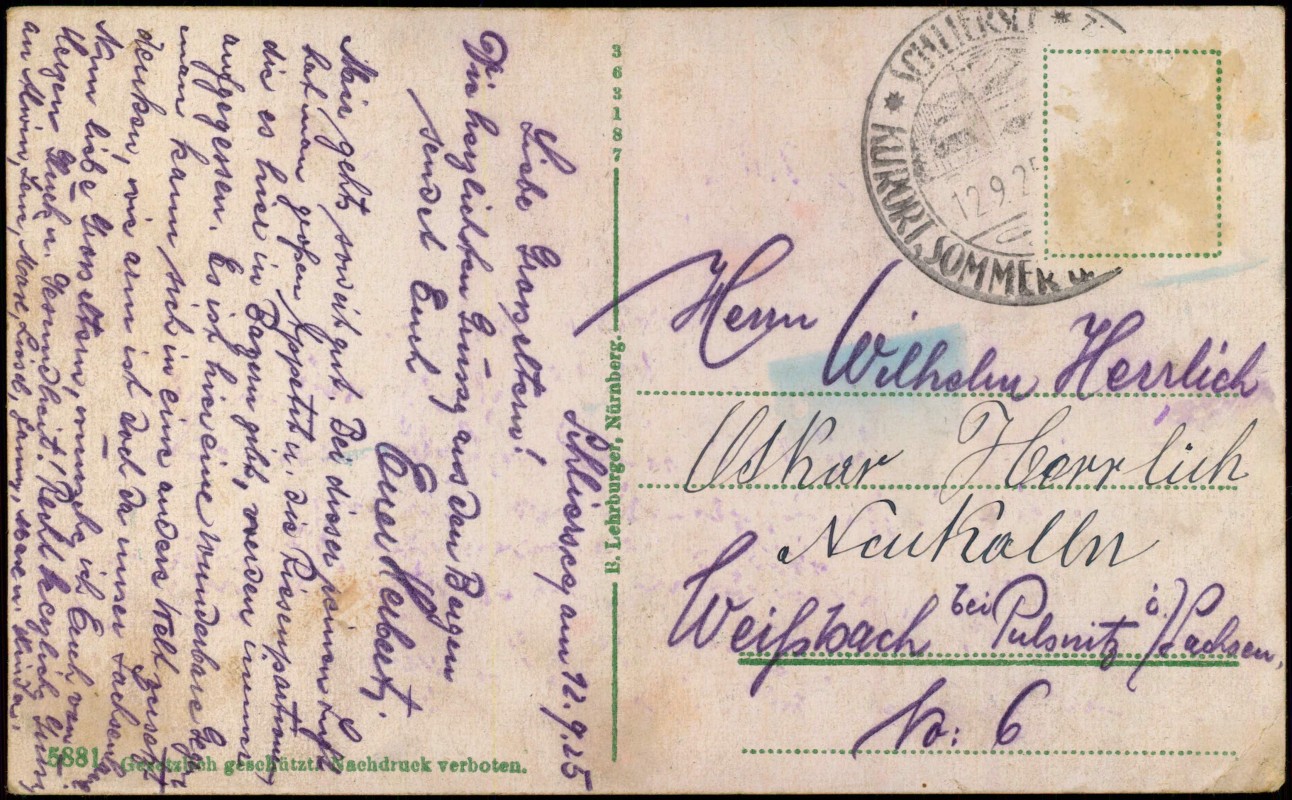 Schliersee, am 12.9.25
Liebe Grosseltern!
Die herzlichsten Grüsse aus den Bergen
sendet Euch
Euer Herbert.
Mir geht's soweit gut. Bei dieser reinen Luft
hat man großen Appetit u. die Riesenportionen,
die es hier in Bayern gibt, werden immer
aufgegessen. Es ist hier eine wunderbare Gegend
man kann sich in eine andere Welt versetzt
denken, wie arm ist doch da unser Sachsen.
Nun liebe Grosseltern, wünsche ich Euch von
Herzen Glück u. Gesundheit. Recht herzliche Grüße
an Alwin, Lena, Max, Liesel,
363187
B. Lehrburger, Nürnberg.
5881 Gesetzlich geschützt. Nachdruck verboten.
SCHLIERSEE
KURORT, SOMMER
12.9.25
Herrn Wilhelm Herrlich
Oskar Herrlich
Neukölln
Weißbach bei Pulsnitz i./Sachsen,
No: 6